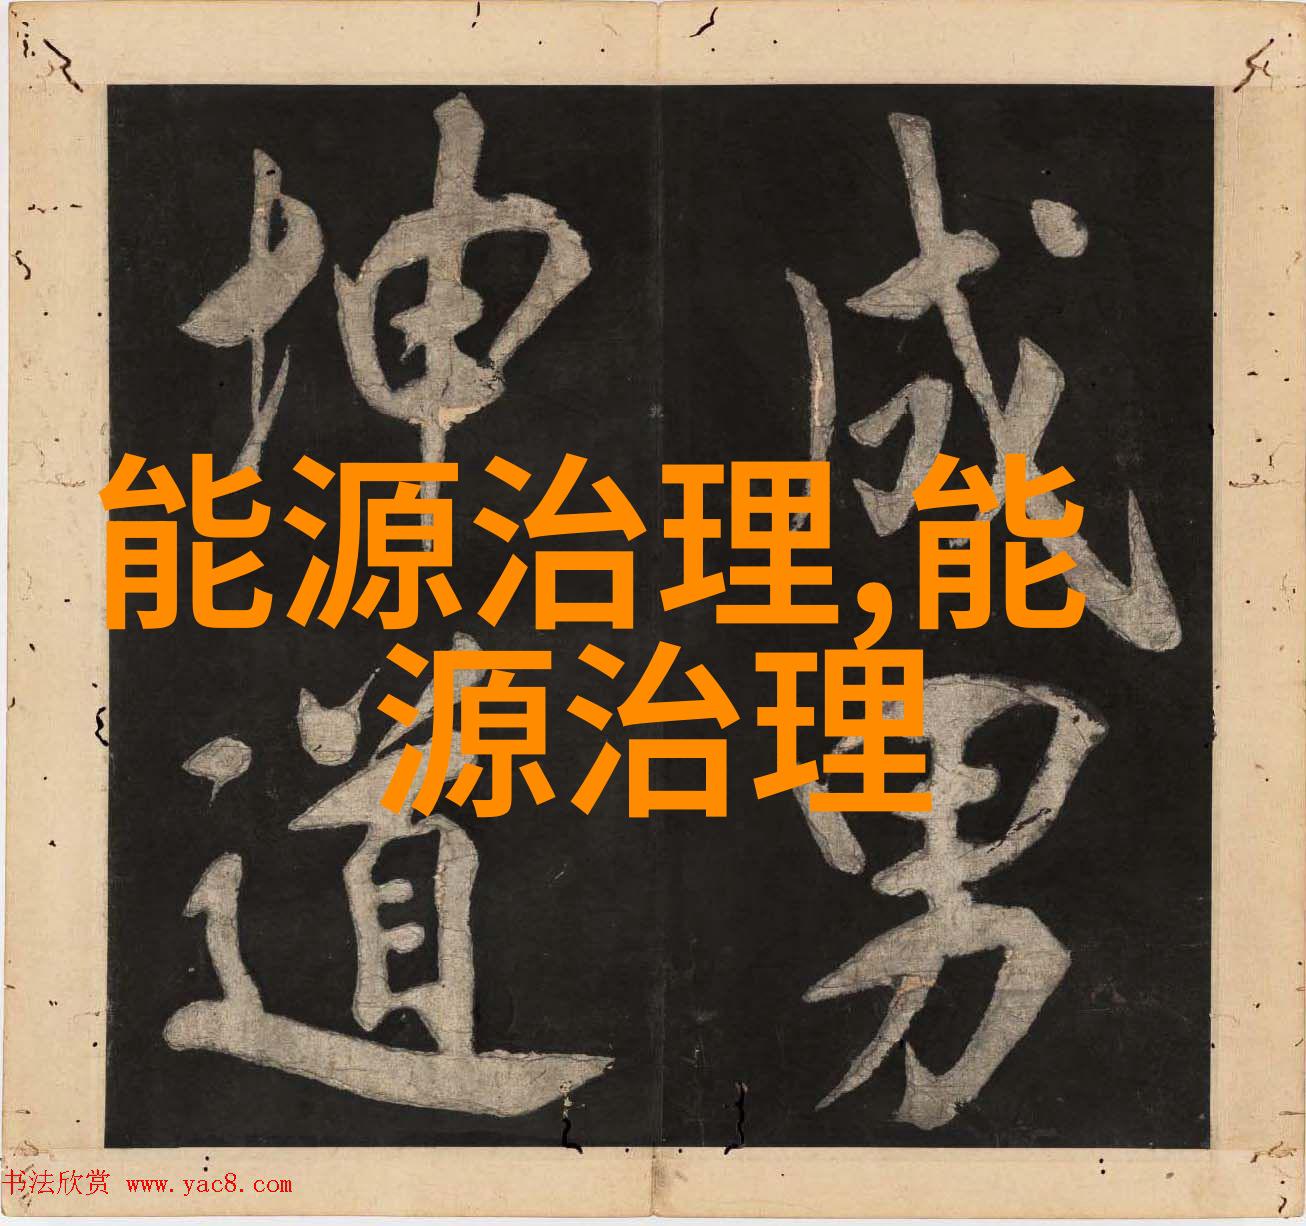 成男
坤道
能源治理,能
源治理
书法欣赏 www.yac8.com